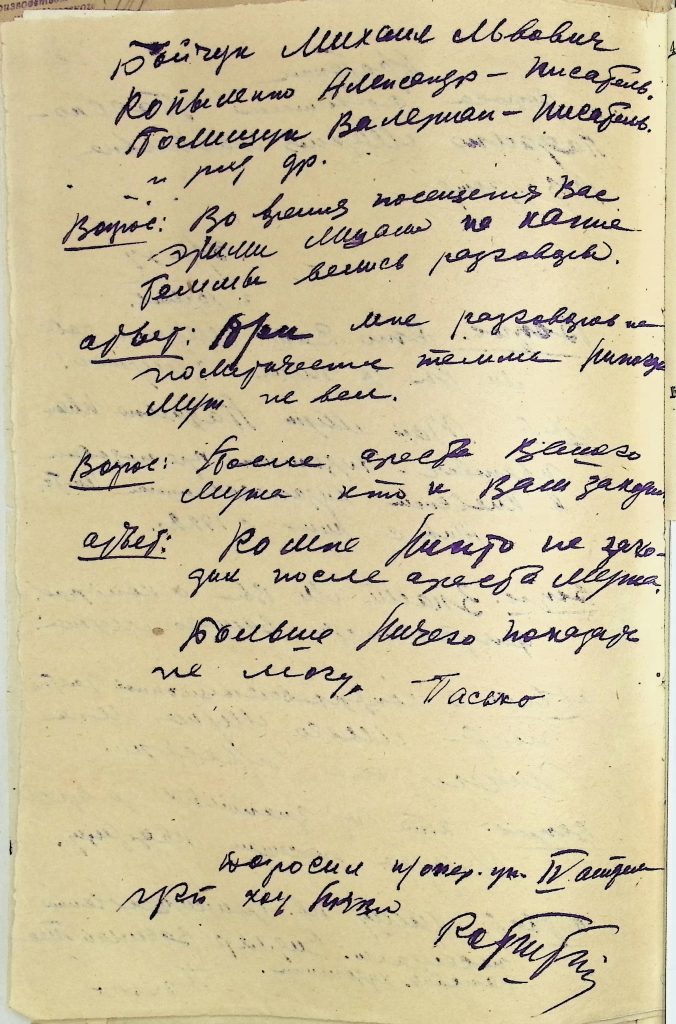 Бойчук Михаил Львович
Копыленко Александр - писатель.
Полищук Валериан - писатель.
и ряд др.
Вопрос: Во время посещения Вас
этими лицами на какие
темы велись разговоры.
ответ: При мне разговоров на
политические темы никогда
муж не вел.
Вопрос: После ареста Вашего
мужа кто к Вам заходил
ответ: Ко мне никто не захо-
дил после ареста мужа.
Больше ничего показать
не могу.
Пасько
Допросил п/опер. уп. IV отдела